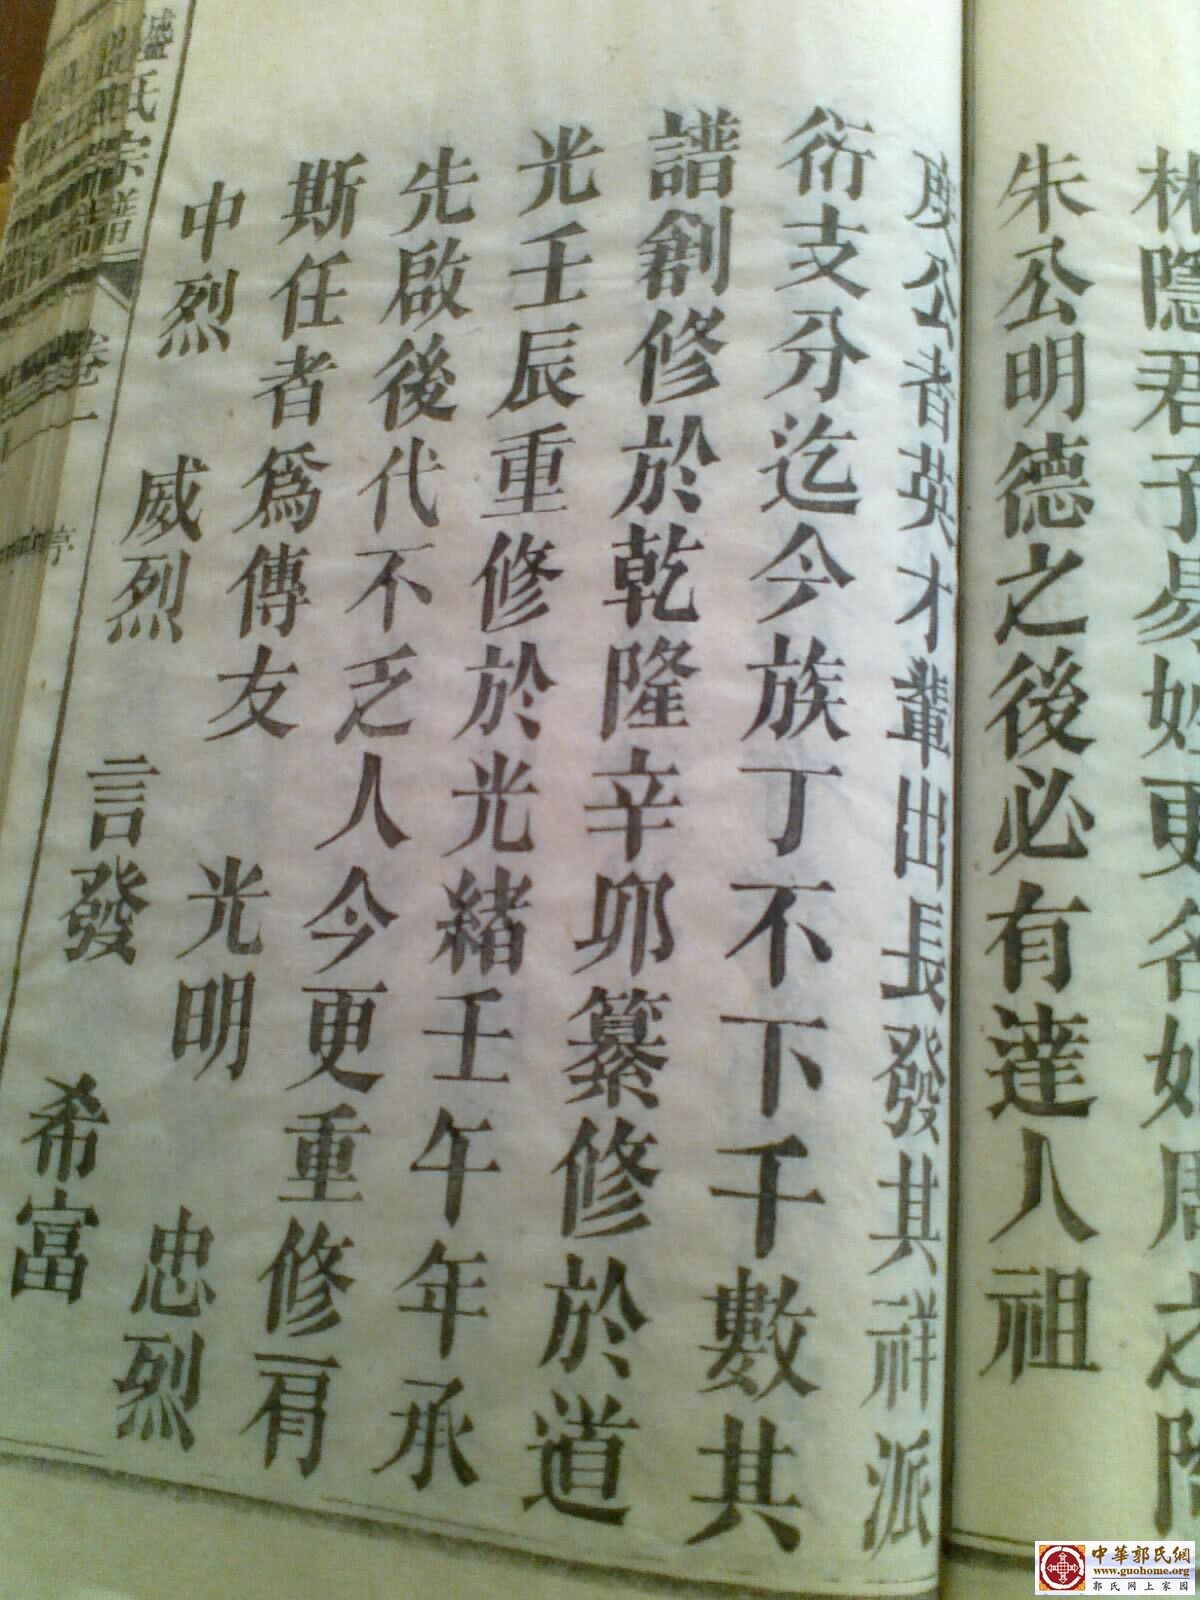 林隱君子易姓更名如周之隆
朱公明德之後必有達人祖
庚公者英才輩出長發其祥派
衍支分迄今族丁不下千數其
譜創修於乾隆辛卯纂修於道
光壬辰重修於光緒壬午年承
先啟後代不乏人今更重修肩
斯任者為傳友 光明 忠烈
中烈 威烈 言發 希富
氏宗譜 卷一
中華郭氏網
www.guohome.org
郭氏网上家园